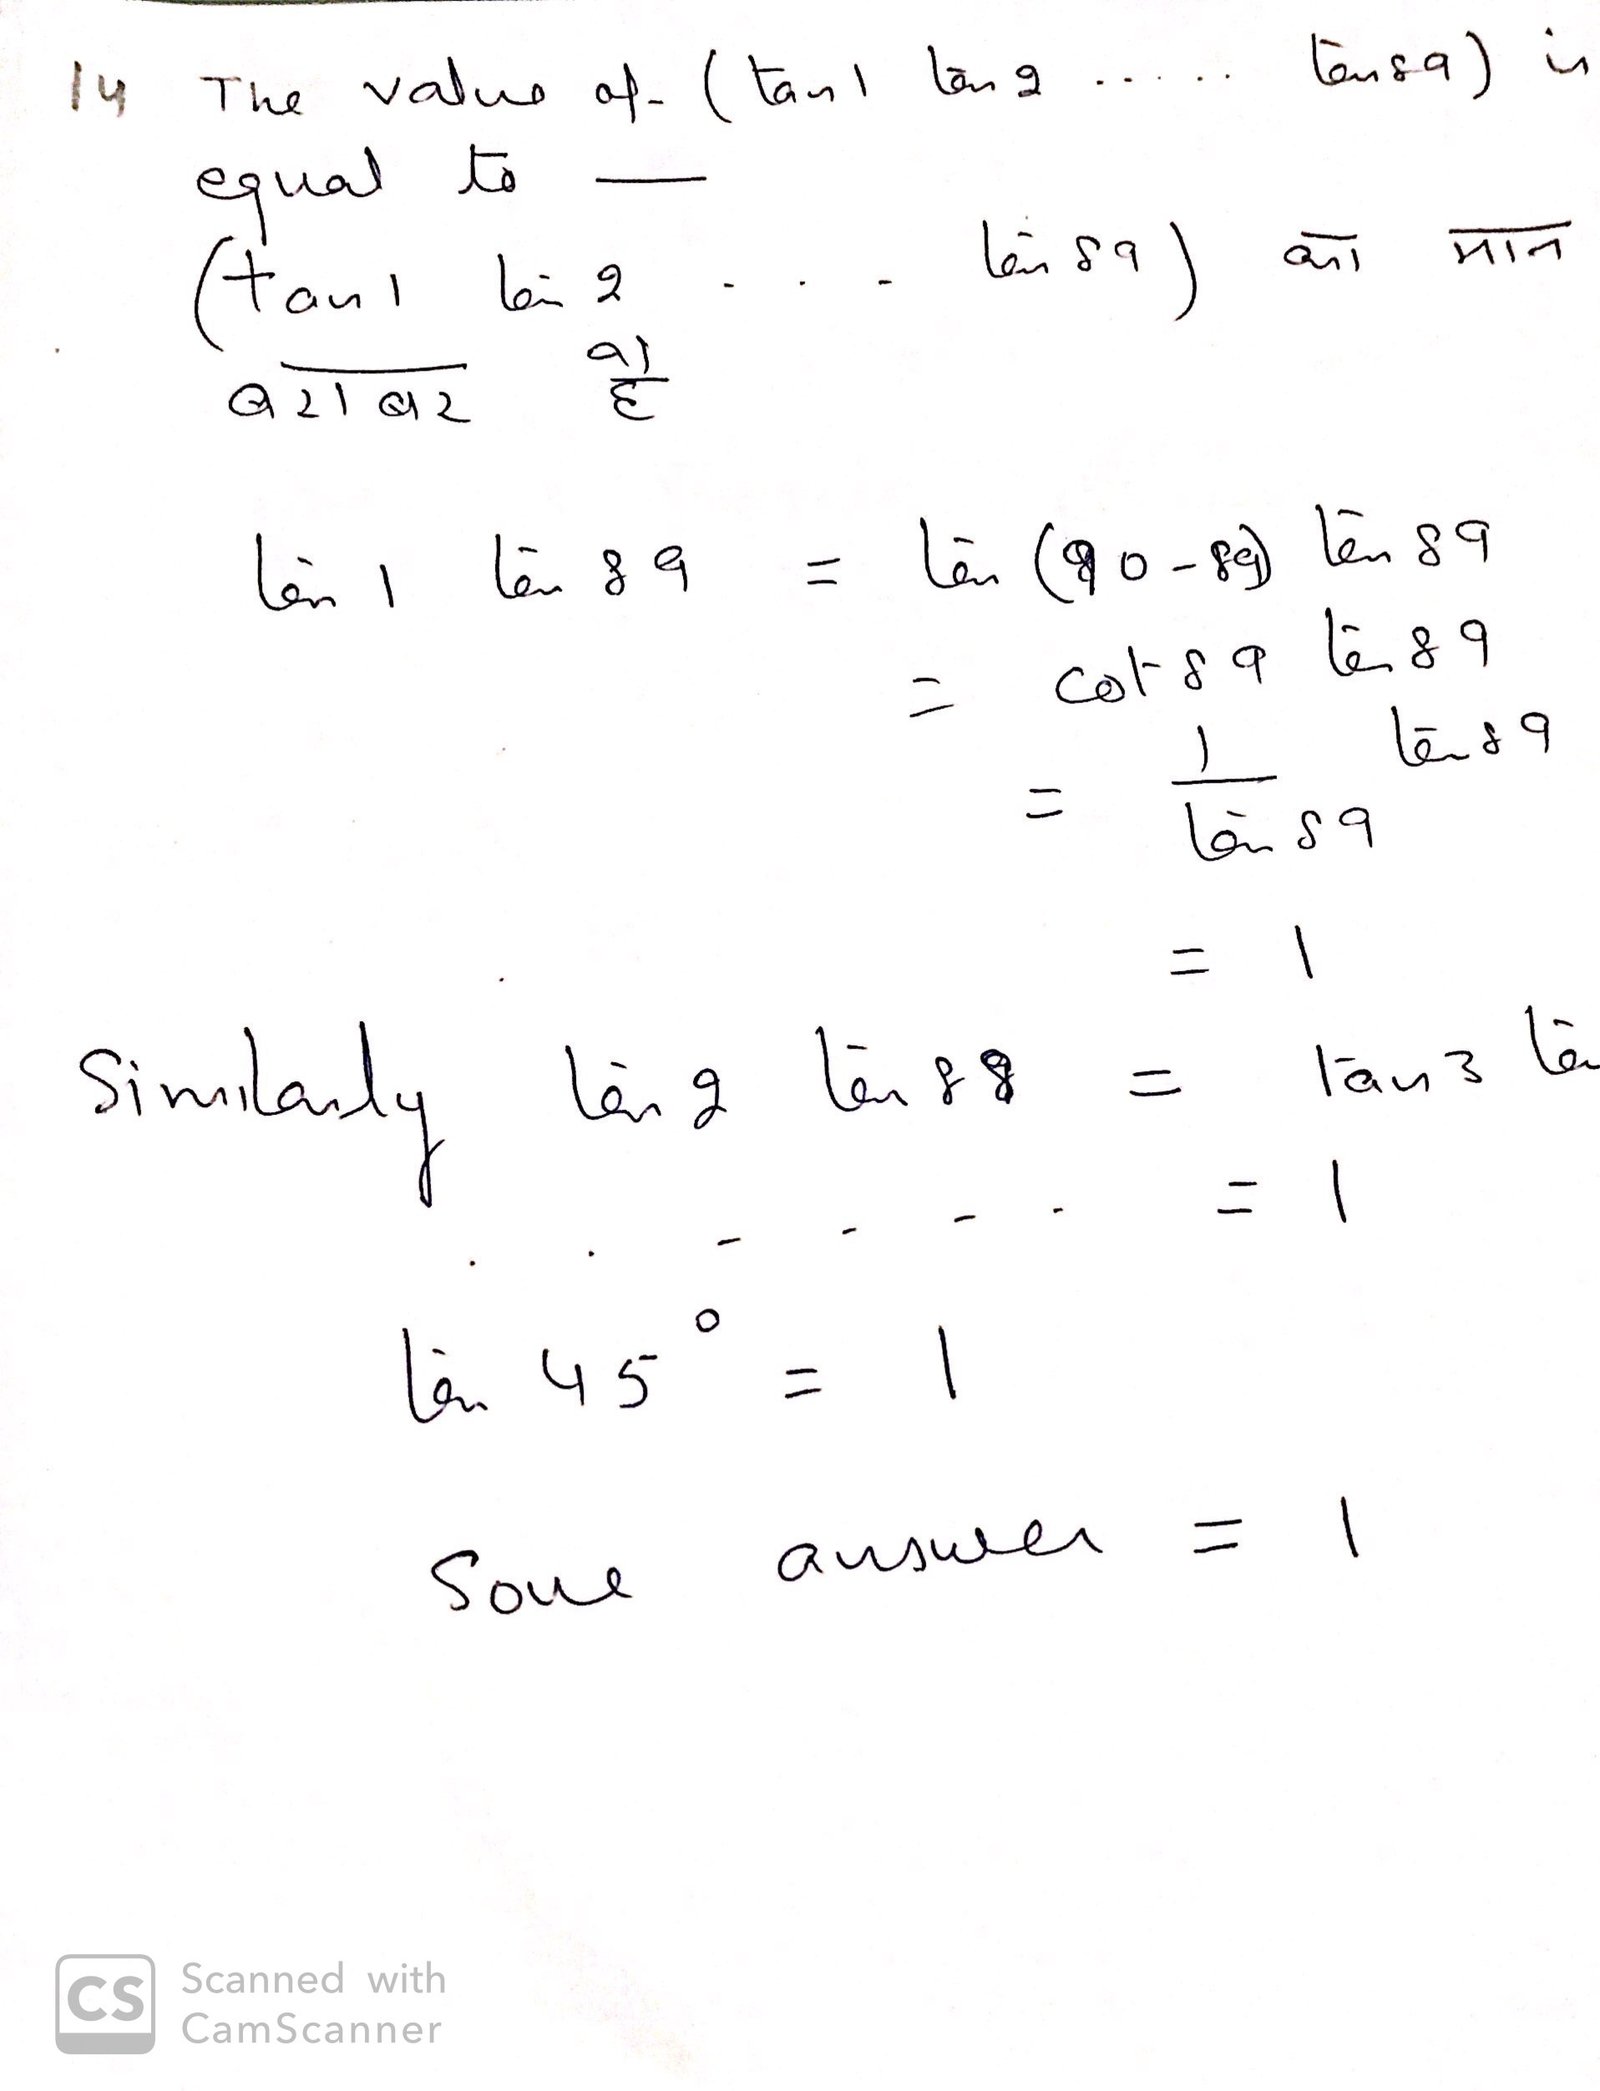 14 The value of (tan 1 tan 2 ..... tan 89) is
equal to —
(tan 1 tan 2 .... tan 89) का मान
बराबर है
tan 1 tan 89 = tan (90-89) tan 89
= cot 89 tan 89
= 1/tan 89 tan 89
= 1
Similarly tan 2 tan 88 = tan 3 tan
. . - - - - = 1
tan 45° = 1
answer = 1
CS Scanned with
CamScanner